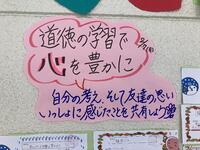 道徳の学習で
心を豊かに
自分の考え、そして友達の思い
いっしょに感じたことを共有しよう